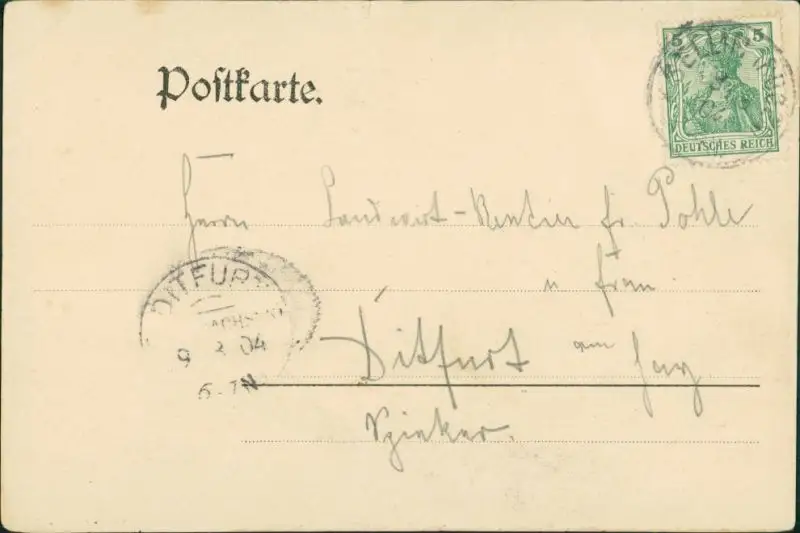 Postkarte.
5 5
DEUTSCHES REICH
Herrn Landwirt-Rentier fr. Pohle
u Frau
DITFURT
9 3 04
6-7N
Ditfurt am Harz